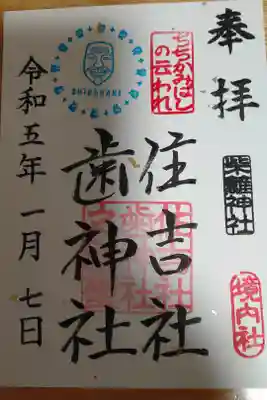 奉拝
柴籬神社
境内社
の云われ
住吉社
歯神社
SHIBAGAKI
令和五年一月七日